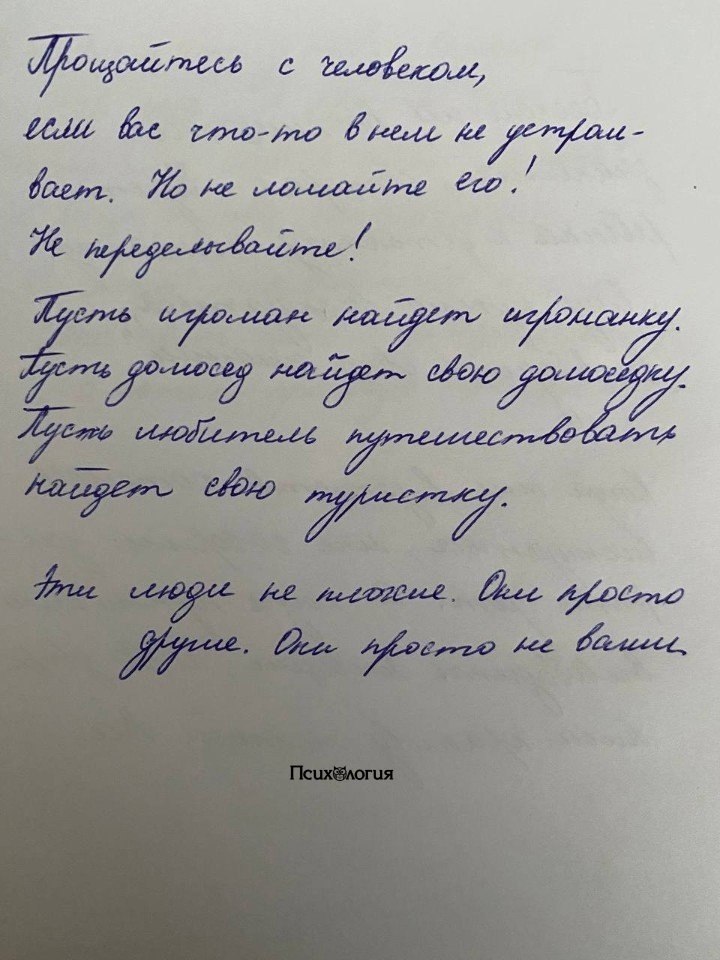 Прощайтесь с человеком,
если вас что-то в нем не устраи-
вает. Но не ломайте его!
Не переделывайте!
Пусть игроман найдет игроманку.
Пусть домосед найдет свою домоседку.
Пусть любитель путешествовать
найдет свою туристку.
Эти люди не плохие. Они просто
другие. Они просто не ваши.
Психология